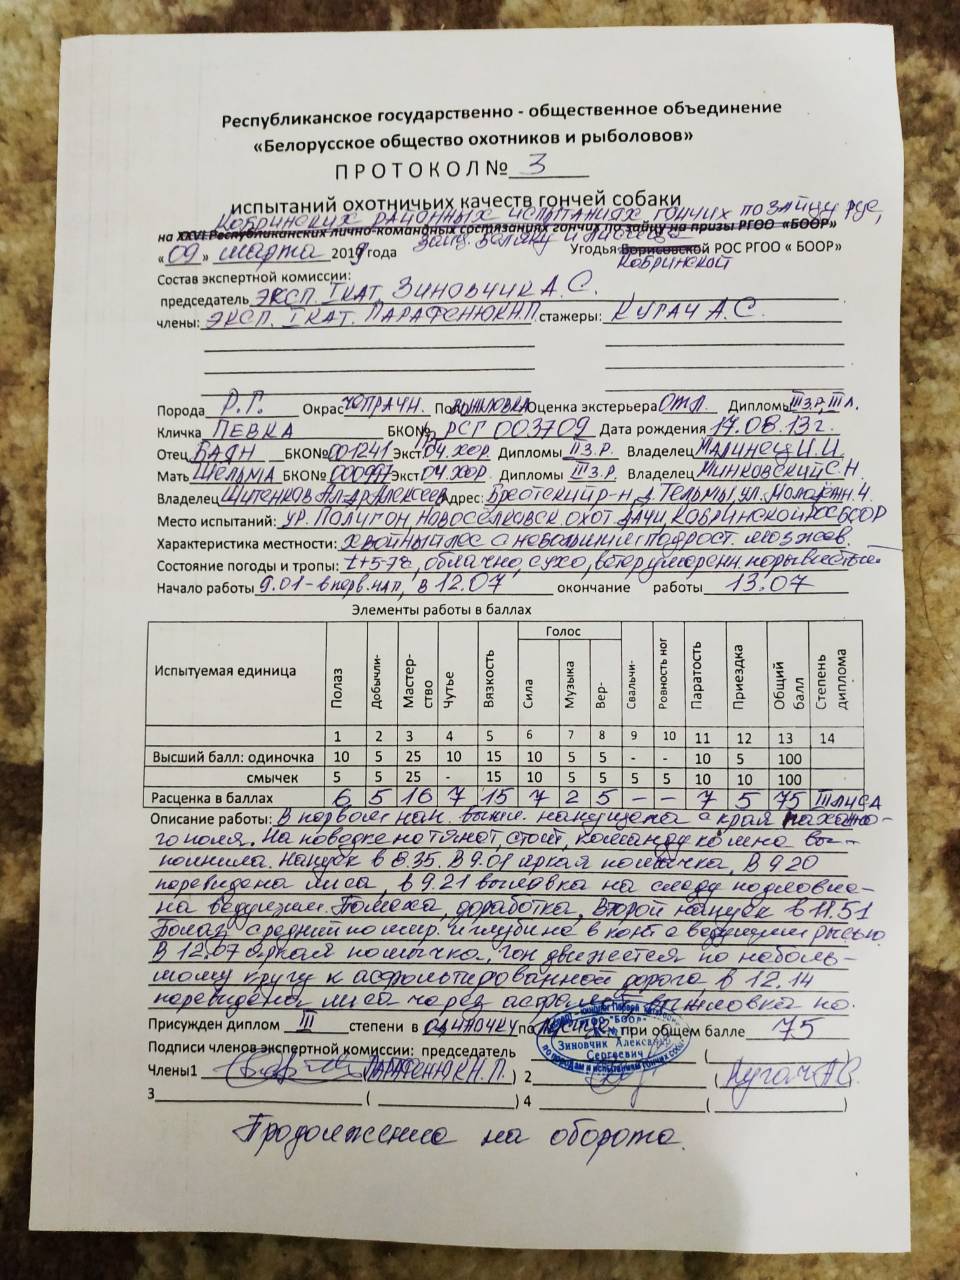 Республиканское государственно - общественное объединение
«Белорусское общество охотников и рыболовов»
П Р О Т О К О Л № 3
испытаний охотничьих качеств гончей собаки
Кобринских районных испытаниях гончих по зайцу рус,
на XXVI Республиканских лично-командных состязаниях гончих по зайцу на призы РГОО «БООР»
«09» марта 2019 года Угодья Борисовской РОС РГОО « БООР»
Кобринской
Состав экспертной комиссии:
председатель ЭКСП. I КАТ. ЗИНОВЧИК А.С.
члены: ЭКСП. I КАТ. ПАРАФЕНЮК Н.П. стажеры: КУГАЧ А.С.
Порода Р.Г. Окрас ЧЕПРАЧН. Пол ВЫЖЛОВКА Оценка экстерьера ОТЛ. Дипломы III З.Р, III Л.
Кличка ПЕВКА БКО№ РСГ 003709 Дата рождения 17.08.13г.
Отец БАЯН БКО№ 001241 Экст ОЧ.ХОР. Дипломы II З.Р. Владелец МАЛИНЕЦ И.И.
Мать ШЕЛЬМА БКО№ 000997 Экст ОЧ.ХОР. Дипломы III З.Р. Владелец МИНКОВСКИЙ С.Н.
Владелец Адрес: Брестский р-н, д. Тельмы, ул. Молодёжн. 4.
Место испытаний: УР. ПОЛИГОН, НОВОСЕЛКОВСК. ОХОТ ДАЧИ, КОБРИНСКОЙ РОС БООР
Характеристика местности: хвойный лес с небольшим подрост.
Состояние погоды и тропы: t+5-7с, облачно, сухо, ветер умеренн. порывистый.
Начало работы 9.01 - в перв. нап., в 12.07 окончание работы 13.07
Элементы работы в баллах
Испытуемая единица Полаз Добычли- Мастер-ство Чутье Вязкость Голос Сила Музыка Вер- Свальчи- Ровность ног Паратость Приездка Общий балл Степень диплома
1 2 3 4 5 6 7 8 9 10 11 12 13 14
Высший балл: одиночка 10 5 25 10 15 10 5 5 - - 10 5 100
смычек 5 5 25 - 15 10 5 5 5 5 10 10 100
Расценка в баллах 6 5 16 7 15 7 2 5 — — 7 5 75 III ЛИСА
Описание работы: В первом нап. выжл. напущена с края пахано-
го поля. На поводке не тянет, стоит, команду ко мне вы-
полнила. Напуск в 8.35. В 9.01 яркая помычка, В 9.20
перевидена лиса, в 9.21 выжловка на следу подловле-
на ведущим. Помеха, доработка, Второй напуск в 11.51
Полаз средний по шир. и глубине в конт с ведущим рысью.
В 12.07 яркая помычка, гон движется по неболь-
шому кругу к асфальтированной дороге в 12.14
перевидена лиса через асфальт выжловка по.
Присужден диплом III степени в одиночку по лисице при общем балле 75
Подписи членов экспертной комиссии: председатель
Зиновчик Александр
Сергеевич
Члены1 ПАРАФЕНЮК Н.П. ) 2 ( Кугач А.С.
3 ( ) 4 ( )
Продолжение на обороте.